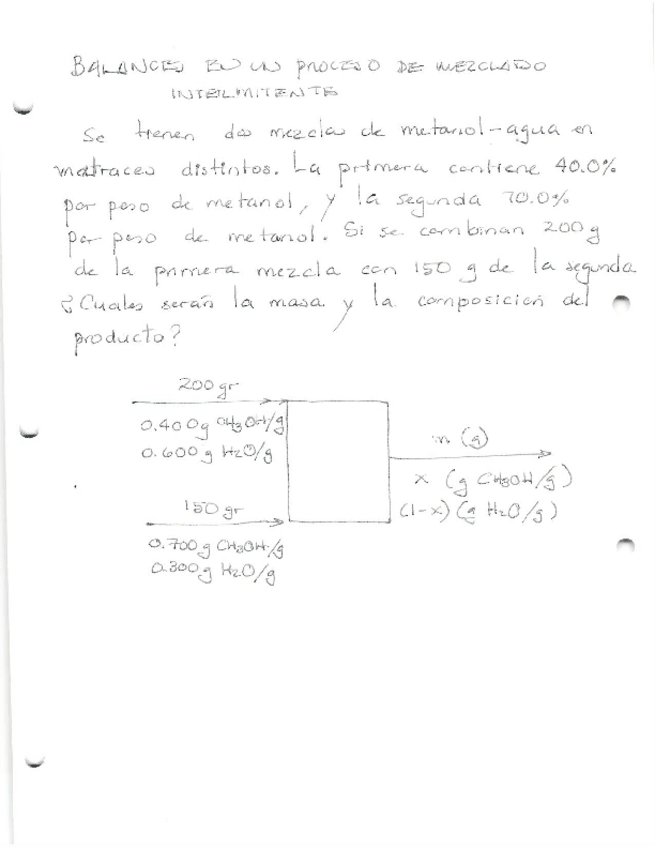 BALANCES EN UN PROCESO DE MEZCLADO
INTERMITENTE
Se tienen dos mezclas de metanol-agua en
matraces distintos. La primera contiene 40.0%
por peso de metanol, y la segunda 70.0%
por peso de metanol. Si se combinan 200 g
de la primera mezcla con 150 g de la segunda
¿Cuales serán la masa y la composición del
producto?
200 gr
0.400 g CH3OH/g
0.600 g H2O/g
m (g)
x (g CH3OH/g)
(1-x) (g H2O/g)
150 gr
0.700 g CH3OH/g
0.300 g H2O/g